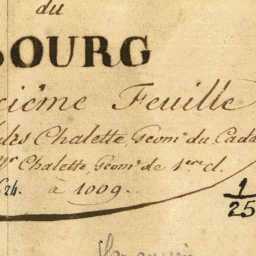 du
BOURG
xième Feuille
les Chalette, Géomᵉ du Cada
Mʳ Chalette, Géomᵉ de 1ère cl.
à 1009.
1/25